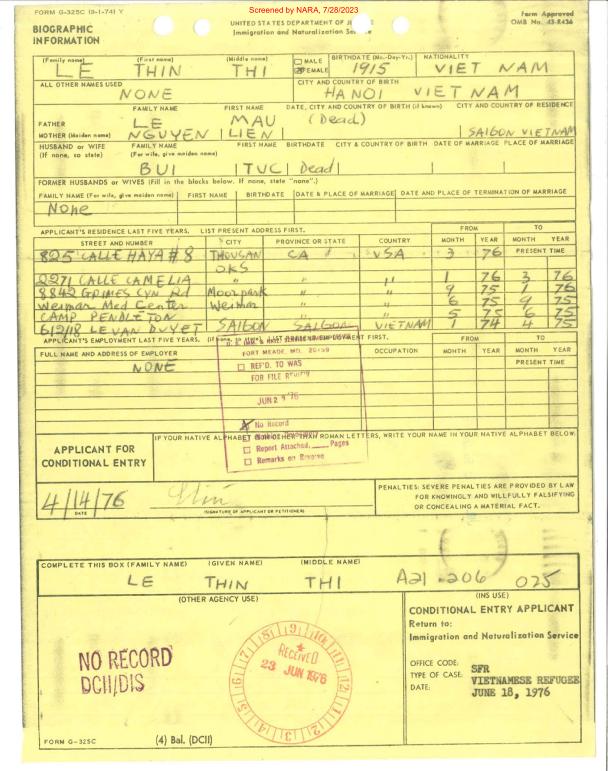 Screened by NARA, 7/28/2023
FORM G-325C (9-1-74) Y
UNITED STATES DEPARTMENT OF
Form Approved
Immigration and Naturalization
OMB No. 43-R436
BIOGRAPHIC
INFORMATION
(Family name) (First name) (Middle name) MALE FEMALE BIRTHDATE (Mo.-Day-Yr.) NATIONALITY
LE THIN THI 1915 VIET NAM
ALL OTHER NAMES USED CITY AND COUNTRY OF BIRTH
NONE HANOI VIET NAM
FAMILY NAME FIRST NAME DATE, CITY AND COUNTRY OF BIRTH (if known) CITY AND COUNTRY OF RESIDENCE
FATHER LE MAU (Dead)
MOTHER (Maiden name) NGUYEN LIEN SAIGON VIETNAM
HUSBAND or WIFE FAMILY NAME FIRST NAME BIRTHDATE CITY & COUNTRY OF BIRTH DATE OF MARRIAGE PLACE OF MARRIAGE
(If none, so state) (For wife, give maiden name)
BUI TUC Dead
FORMER HUSBANDS or WIVES (Fill in the blocks below. If none, state "none".)
FAMILY NAME (For wife, give maiden name) FIRST NAME BIRTHDATE DATE & PLACE OF MARRIAGE DATE AND PLACE OF TERMINATION OF MARRIAGE
None
APPLICANT'S RESIDENCE LAST FIVE YEARS. LIST PRESENT ADDRESS FIRST. FROM TO
STREET AND NUMBER CITY PROVINCE OR STATE COUNTRY MONTH YEAR MONTH YEAR
825 CALLE HAYA #8 THOUSAN OKS CA USA 3 76 PRESENT TIME
2271 CALLE CAMELIA " " " 1 76 3 76
8842 GRIMES CYN Rd Moorpark " " 9 75 1 76
Weimar Med Center Weimar " " 6 75 9 75
CAMP PENDLETON " " 5 75 6 75
612/18 LE VAN DUYET SAIGON SAIGON VIETNAM 1 74 4 75
APPLICANT'S EMPLOYMENT LAST FIVE YEARS. (If none, so state) LIST PRESENT EMPLOYMENT FIRST. FROM TO
FULL NAME AND ADDRESS OF EMPLOYER OCCUPATION MONTH YEAR MONTH YEAR
NONE PRESENT TIME
FORT MEADE, MD. 20755
REF'D. TO WAS
FOR FILE REVIEW
JUN 29 '76
No Record
Report Attached, Pages
Remarks on Reverse
IF YOUR NATIVE ALPHABET IS IN OTHER THAN ROMAN LETTERS, WRITE YOUR NAME IN YOUR NATIVE ALPHABET BELOW:
APPLICANT FOR
CONDITIONAL ENTRY
4/14/76 Thin
DATE (SIGNATURE OF APPLICANT OR PETITIONER)
PENALTIES: SEVERE PENALTIES ARE PROVIDED BY LAW
FOR KNOWINGLY AND WILLFULLY FALSIFYING
OR CONCEALING A MATERIAL FACT.
COMPLETE THIS BOX (FAMILY NAME) (GIVEN NAME) (MIDDLE NAME)
LE THIN THI A21 206 025
(OTHER AGENCY USE) (INS USE)
CONDITIONAL ENTRY APPLICANT
Return to:
Immigration and Naturalization Service
NO RECORD
DCII/DIS
RECEIVED
23 JUN 1976
OFFICE CODE: SFR
TYPE OF CASE: VIETNAMESE REFUGEE
DATE: JUNE 18, 1976
FORM G-325C
(4) Bal. (DCII)